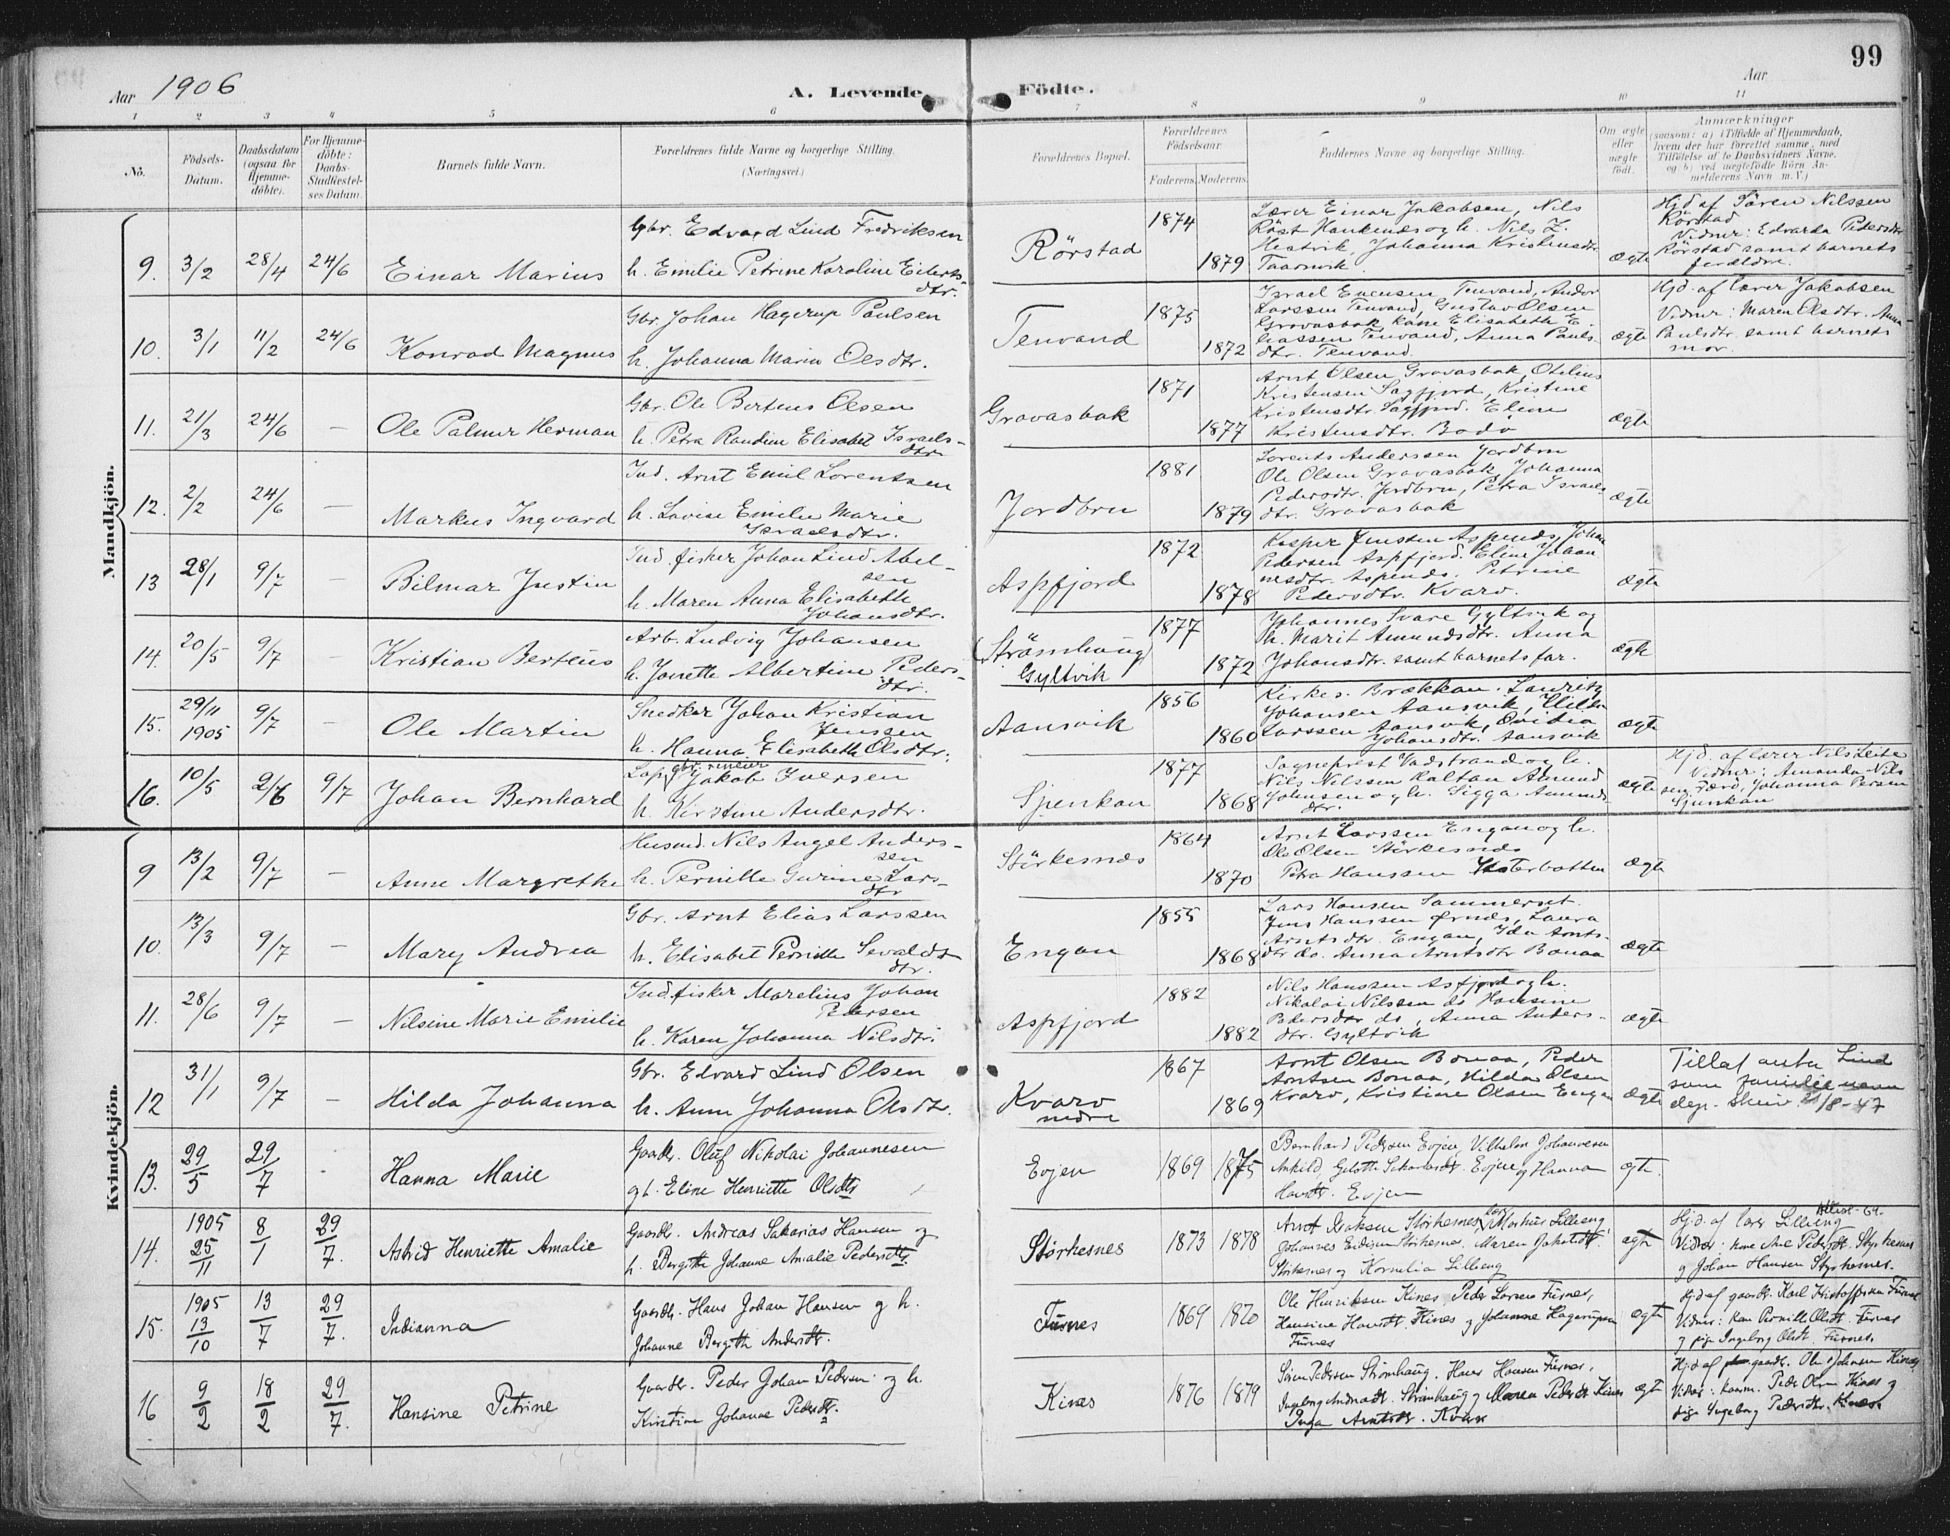 99
Aar 1906
A. Levende
Födte.
Aar
1 2 3 4 5 6 7 8 9 10 11
No.
Födsels-Datum.
Daabsdatum (ogsaa for Hjemmedöbte).
For Hjemmedöbte: Daabs-Stadfæstelses Datum.
Barnets fulde Navn.
Forældrenes fulde Navne og borgerlige Stilling. (Næringsvei.)
Forældrenes Bopæl.
Forældrenes Födselsaar
Faderens. Moderens.
Faddernes Navne og borgerlige Stilling.
Om ægte eller uægte født.
Anmærkninger
(saasom: a) i Tilfælde af Hjemmedaab, hvem der har forrettet samme, med Tilføielse af to Daabsvidners Navne, og b) ved uægtefødte Börn Anmelderens Navn m. V.)
Mandkjön.
9. 3/2 28/4 24/6 Einar Marius
Gbr. Edvard Lind Fredriksen
h. Emilie Petrine Karoline Eilertsdtr.
Rörstad 1874 1879
Lærer Einar Jakobsen, Nils
Röst Hankenes og h. Nils Z.
Hestvik, Johanna Kristensdtr.
Taarnvik. ægte
Hjd af Sören Nilssen
Rörstad
Vidner: Edvarda Pedersdtr
Rörstad samt barnets
forældre.
10. 3/1 11/2 24/6 Konrad Magnus
Gbr. Johan Hagerup Paulsen
h. Johanna Maria Olsdtr.
Tenvand 1875 1872
Israel Evensen Tenvand, Andor
Larssen Tenvand, Gustav Olsen
Gravasbak, Kone Elisabeth E-
liassen Tenvand, Anna Pauls-
dtr. Tenvand. ægte
Hjd. af lærer Jakobsen
Vidner: Maren Olsdtr. Anna
Paulsdtr. samt barnets
mor.
11. 21/3 24/6 — Ole Palmer Herman
Gbr. Ole Berteus Olsen
h. Petra Randine Elisabet Israels-
dtr.
Gravasbak 1871 1877
Arnt Olsen Gravasbak, Otelius
Kristensen Sagfjord, Kristine
Kristensdtr. Sagfjord. Eline
Kristensdtr. Bodø ægte
12. 2/2 24/6 — Markus Ingvard
Ind. Arnt Emil Lorentsen
h. Lovise Emilie Marie
Israelsdtr.
Jordbru 1881 1879
Lorents Anderssen Jordbru
Ole Olsen Gravasbak, Johanna
Pedersdtr. Jordbru, Petra Israels-
dtr. Gravasbak ægte
13 28/1 9/7 — Bilmar Justin
Ind. fisker Johan Lind Abel-
sen
h. Maren Anna Elisabeth
Johansdtr.
Aspfjord 1872 1878
Kasper Jenssen Aspenes, Johan
Pedersen Aspfjord. Eline Johan
nesdtr. Aspenes. Petrine
Pedersdtr. Kvarv. ægte
14. 20/5 9/7 — Kristian Berteus
Arb. Ludvig Johansen
h. Jonette Albertine Peders-
dtr.
(Strömhaug) Gyltvik 1877 1872
Johannes Svare Gyltvik og
h. Marit Amundsdtr. Anna
Johansdtr. samt barnets far. ægte
15. 29/11 1905 9/7 — Ole Martin
Snedker Johan Kristian
Jenssen
h. Hanna Elisabeth Olsdtr.
Aansvik 1856 1860
Kirkes. Brækkan. Lauritz
Johansen Aansvik, Hilda
Larssen Aansvik, Ovidia
Johansdtr. Aansvik ægte
16. 10/5 2/6 9/7 Johan Bernhard
Lap, Jakob Iversen
h. Kirstine Andersdtr.
Sjenkan 1877 1868
Sogneprest Vadstrand og h.
Nils Nilssen Kaltan Amund
Johnsen og h. Sigga Amunds-
dtr. ægte
Hjd. af lærer Nils Leite
Vidner: Amanda Nils
sen Færö, Johanna Persen
Sjunkan
Kvindekjön.
9 13/2 9/7 — Anne Margrethe
Husmd. Nils Angel Anders-
sen
h. Pernille Gurine Lars-
dtr
Störkesnes 1864 1870
Arnt Larssen Engan og h.
Ole Olsen Störkesnes
Petra Hanssen Vesterbotten ægte
10. 13/3 9/7 — Mary Andrea
Gbr. Arnt Elias Larssen
h. Elisabet Pernille Sevalds-
dtr.
Engan 1855 1868
Lars Hansen Sommerset.
Jens Hanssen Ørnes, Laura
Arntsdtr. Engan, Ida Arnts-
dtr do. Anna Arntsdtr Bonaa ægte
11. 28/6 9/7 — Nilsine Marie Emilie
Ind. fisker Marelius Johan
Pedersen
h. Karen Johanna Nilsdtr.
Aspfjord 1882 1882
Nils Hanssen Aspfjord og h.
Nikolai Nilssen do Hansine
Pedersdtr do, Anna Anders-
dtr. Gyltvik ægte
12 31/1 9/7 — Hilda Johanna
Gbr. Edvard Lind Olsen
h. Anne Johanna Olsdtr.
Kvarv nedre 1867 1869
Arnt Olsen Bonaa, Peder
Arntsen Bonaa, Hilda Olsen
Kvarv, Kristine Olsen Engan ægte
Tillat anta Lind
som familienavn
dep. skriv. 21/8-47
13. 29/5 29/7 Hanna Marie
Gaardbr. Oluf Nikolai Johannesen
og h. Eline Henriette Olsdtr
Evjen 1869 1875
Bernhard Pedersen Evjen, Vilhelm Johannesen
Evjen og Hanna
Evjen ægt.
14. 1905 25/11 8/1 29/7. Astrid Henriette Amalie
Gaardbr. Andreas Sakarias Hansen og
h. Bergitte Johanne Amalie Pedersdtr.
Störkesnes 1873 1878
Arnt Isaksen Störkesnes, lær. Markus Lillieng,
Johannes Störkesnes, Maren Jakobsdtr
Störkesnes og Kornelia Lillieng ægte
Hjd. af lærer Lillieng
Vidner: kone Ane Pedersdtr. Styrkesnes
og Johan Hansen Styrkesnes.
15. 1905 13/10 13/7 29/7. Indianna
Gaardbr. Hans Johan Hansen og h.
Johanne Bergitte Andersdtr.
Furnes 1869 1870
Ole Henriksen Kines, Peder Larsen Furnes,
Hansine Hansdtr. Kines og Johanne Hagerupsen
Furnes ægte
Hjd af gaardbr. Karl Kristoffersen Furnes
Vidner: Kone Pernille Olsdtr. Furnes
og pige Ingeborg Olsdtr. Furnes.
16 9/2 18/2 29/7. Hansine Petrine
Gaardbr. Peder Johan Pedersen og h.
Kirstine Johanne Pedersdtr.
Kines 1876 1879
Sören Pedersen Strömhaug, Hans Hansen Furnes,
Ingeborg Andreasdtr. Strömhaug og Maren Pedersdtr Kines
Inga Arntsdtr. Kvarv ægte
Hjd af gaardbr. Ole Johnsen Kines
Vidner: Peder Olsen Kines og
pige Ingeborg Pedersdtr. Kines